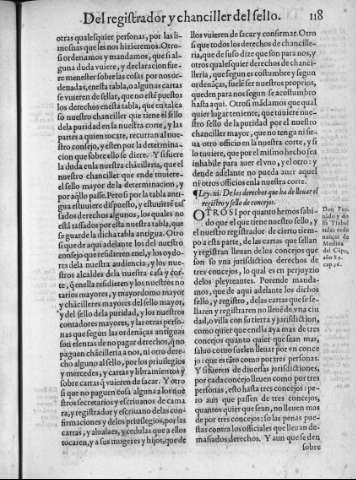 Del registrador y chanciller del sello. 118
otras qualesquier personas, por las li-
mosnas que les nos hizieremos. Otro-
si ordenamos y mandamos, que si al-
guna duda viere, y declaracion fue
re menester sobre las cosas por nos or-
denadas, en esta tabla, o algunas cartas
se vuieren de sellar, que no esté puestos
los derechos en esta tabla, que en tal ca
so nuestro chanciller que tiene el sello
dela puridad en la nuestra corte, y las
partes a quien tocare, recurran al nue-
stro consejo, y esten por la determina-
cion que sobre ello se diere. Y si fuere
la duda en la nuestra chancilleria, que el
nuestro chanciller que ende tuuiere
el sello mayor de la determinacion, y
por aqllo passe. Pero si por la tabla anti-
gua estuuiere dispuesto, y estuuieré tas-
sados derechos algunos, los quales no
está tassados por esta nuestra tabla, que
se guarde la dicha tabla antigua. Otro
si que de aqui adelante los del nuestro
consejo que residieren enel, y los oydo-
res dela nuestra audiencia, y los nue-
stros alcaldes dela nuestra casa y cor-
te, q enella residieren y los nuestros no-
tarios mayores, y mayordomo mayor
y chancilleres mayores del sello mayor,
y del sello dela puridad, y los nuestros
contadores mayores, y las otras perso-
nas que segun las ordenáças antiguas
son esentas de no pagar derechos, q no
paguen chácilleria a nos, ni otro dere-
cho alguno al sello, por los priuilegios
y mercedes, y cartas y libramientos y
sobre cartas q vuieren de sacar. Y otro
si que no paguen cosa alguna a los nue-
stros secretarios y escriuanos de cama
ra, y registrador y escriuano delas con-
firmaciones y delos priuilegios, por las
cartas, y alualaes, y cedulas que a ellos
tocaren, y a sus mugeres y hijos, que de
llos vuieren de sacar y confirmar. Otro
si que todos los derechos de chancille-
ria, que de suso dize que son para nos, y
otros qualesquier derechos de chanci-
lleria, que segun es costumbre y segun
ordenaças, suelé ser a nuestros proprios,
queden para nos segun se acostumbro
hasta aqui. Otrosi mádamos que qual
quier lugarteniente, que tuuiere nue-
stro sello de la puridad por el nuestro
chanciller mayor, que no tenga ni tie-
ua otro officio en la nuestra corte, y si
lo tuuiere, que por el mismo hecho sea
inhabile para auer el vno, y el otro: y
dende adelante no pueda auer aquel
ni otros officios en la nuestra corte.
¶ Ley. iii. De los derechos que ha de lleuar el
registro y sello de concejos.
OTROSI por quanto hemos sabi-
do que el que tiene nuestro sello, y
el nuestro registrador de cierto tiem-
po a esta parte, de las cartas que sellan
y registran lleuan de los concejos que
son so vna jurisdicion derechos de
tres concejos, lo qual es en perjuyzio
delos pleyteantes. Porende manda-
mos, que de aqui adelante los dichos
sello, y registro, de las cartas que se se-
llaren y registraren no lleué de vna ciu
dad, o villa con su tierra y jurisdiscion,
como quier que enella aya mas de tres
concejos quanto quier que sean mas,
saluo como suelen lleuar por vn conce
jo: que es tanto como por tres personas.
Y si fueren de diuersas jurisdiciones,
por cada concejo lleuen como por tres
personas, esto hasta tres concejos: pe-
ro aun que passen de tres concejos,
quantos quier que sean, no lleuen mas
de por tres concejos: so las penas pue-
stas contra los officiales que lleuan de-
masiados derechos. Y aun que se den
sobre
Don Fer-
nádo y do
ña Ysabel
en las orde
nanças de
Medina
del Cápo,
año 89.
cap. 26.